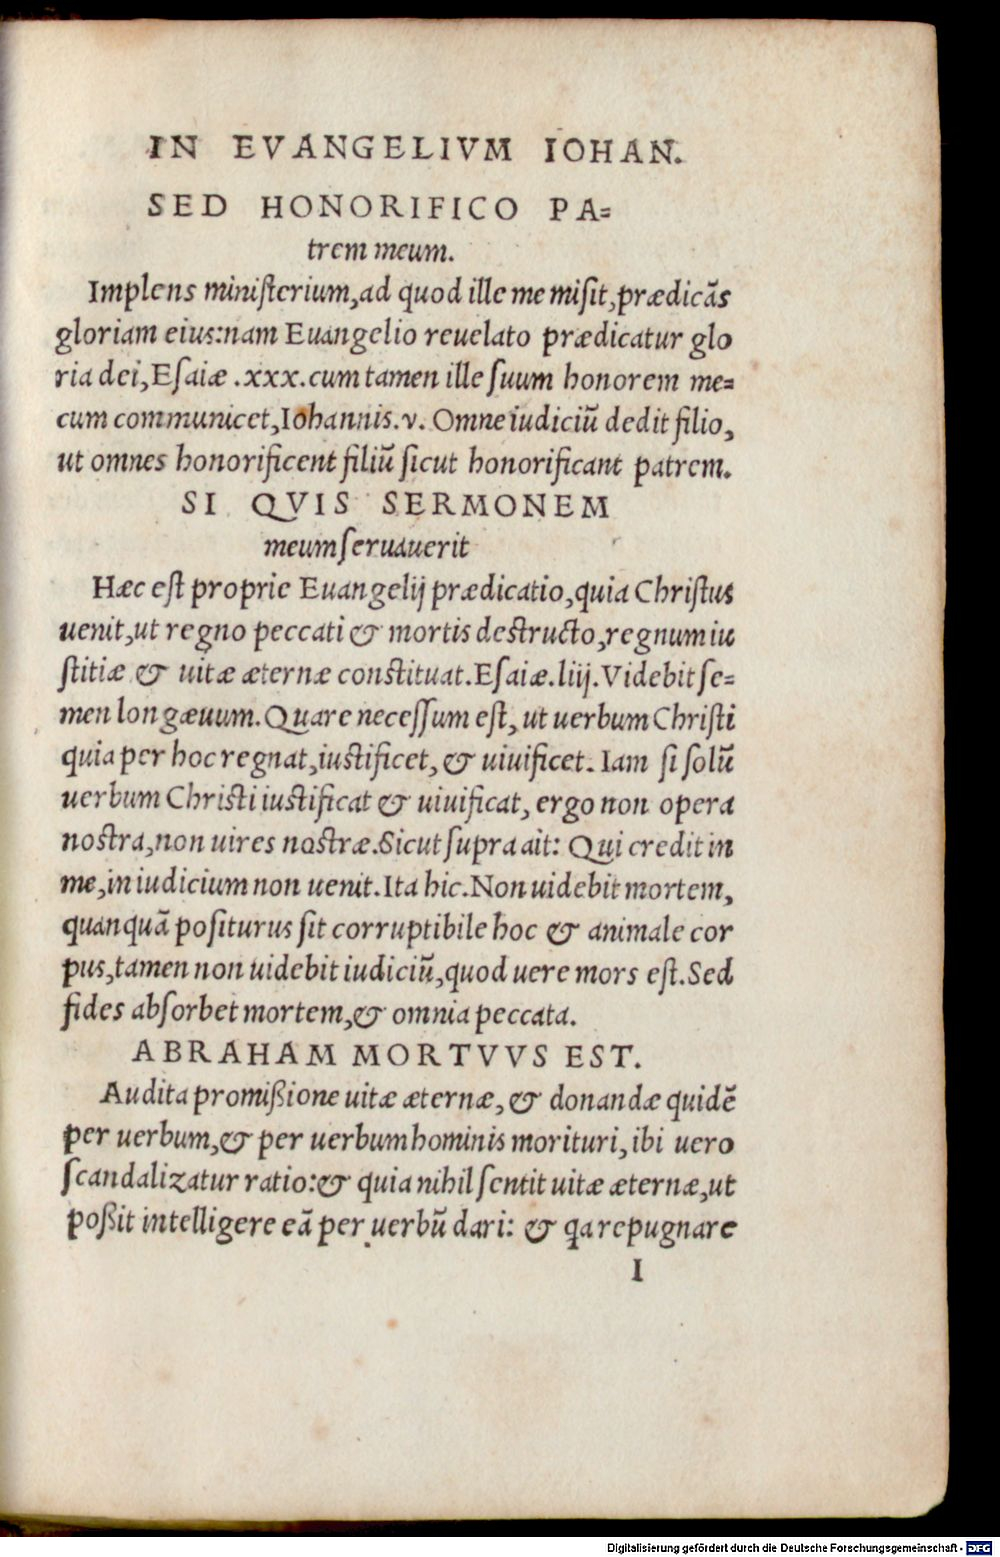 IN EVANGELIVM IOHAN.
SED HONORIFICO PA=
trem meum.
Implens ministerium, ad quod ille me misit, prædicãs
gloriam eius: nam Euangelio reuelato prædicatur glo
ria dei, Esaiæ .xxx. cum tamen ille suum honorem me=
cum communicet, Iohannis. v. Omne iudiciũ dedit filio,
ut omnes honorificent filiũ sicut honorificant patrem.
SI QVIS SERMONEM
meum seruauerit
Hæc est proprie Euangelij prædicatio, quia Christus
uenit, ut regno peccati & mortis destructo, regnum iu
stitiæ & uitæ æternæ constituat. Esaiæ. liij. Videbit se=
men longæuum. Quare necessum est, ut uerbum Christi
quia per hoc regnat, iustificet, & uiuificet. Iam si solũ
uerbum Christi iustificat & uiuificat, ergo non opera
nostra, non uires nostræ. Sicut supra ait: Qui credit in
me, in iudicium non uenit. Ita hic. Non uidebit mortem,
quanquã positurus sit corruptibile hoc & animale cor
pus, tamen non uidebit iudiciũ, quod uere mors est. Sed
fides absorbet mortem, & omnia peccata.
ABRAHAM MORTVVS EST.
Audita promißione uitæ æternæ, & donandæ quidẽ
per uerbum, & per uerbum hominis morituri, ibi uero
scandalizatur ratio: & quia nihil sentit uitæ æternæ, ut
poßit intelligere eã per uerbũ dari: & qa repugnare
I
Digitalisierung gefördert durch die Deutsche Forschungsgemeinschaft - DFG